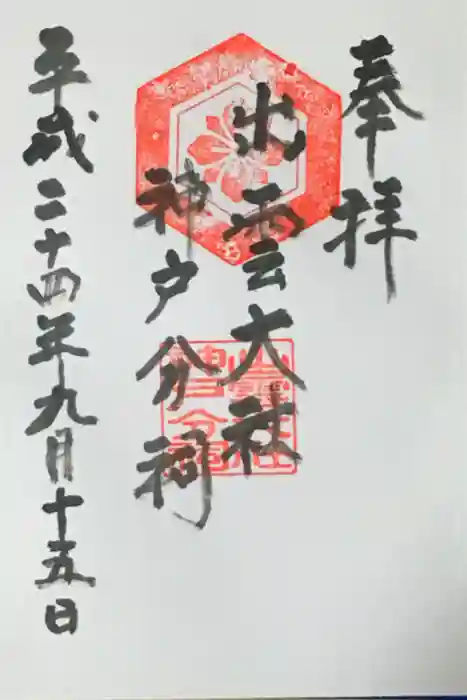 奉拝
出雲大社
神戸分祠
平成二十四年九月十五日